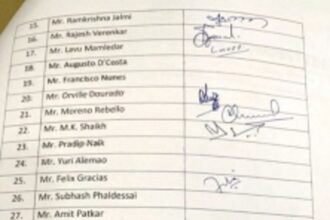 15. Mr. Ramkrishna Jalmi
16. Mr. Rajesh Verenkar
17. Mr. Lavu Mamledar
18. Mr. Augusto D'Costa
19. Mr. Francisco Nunes
20. Mr. Orville Dourado
21. Mr. Moreno Rebello
22. Mr. M.K. Shaikh
23. Mr. Pradip Naik
24. Mr. Yuri Alemao
25. Mr. Felix Gracias
26. Mr. Subhash Phaldessai
27. Mr. Amit Patkar